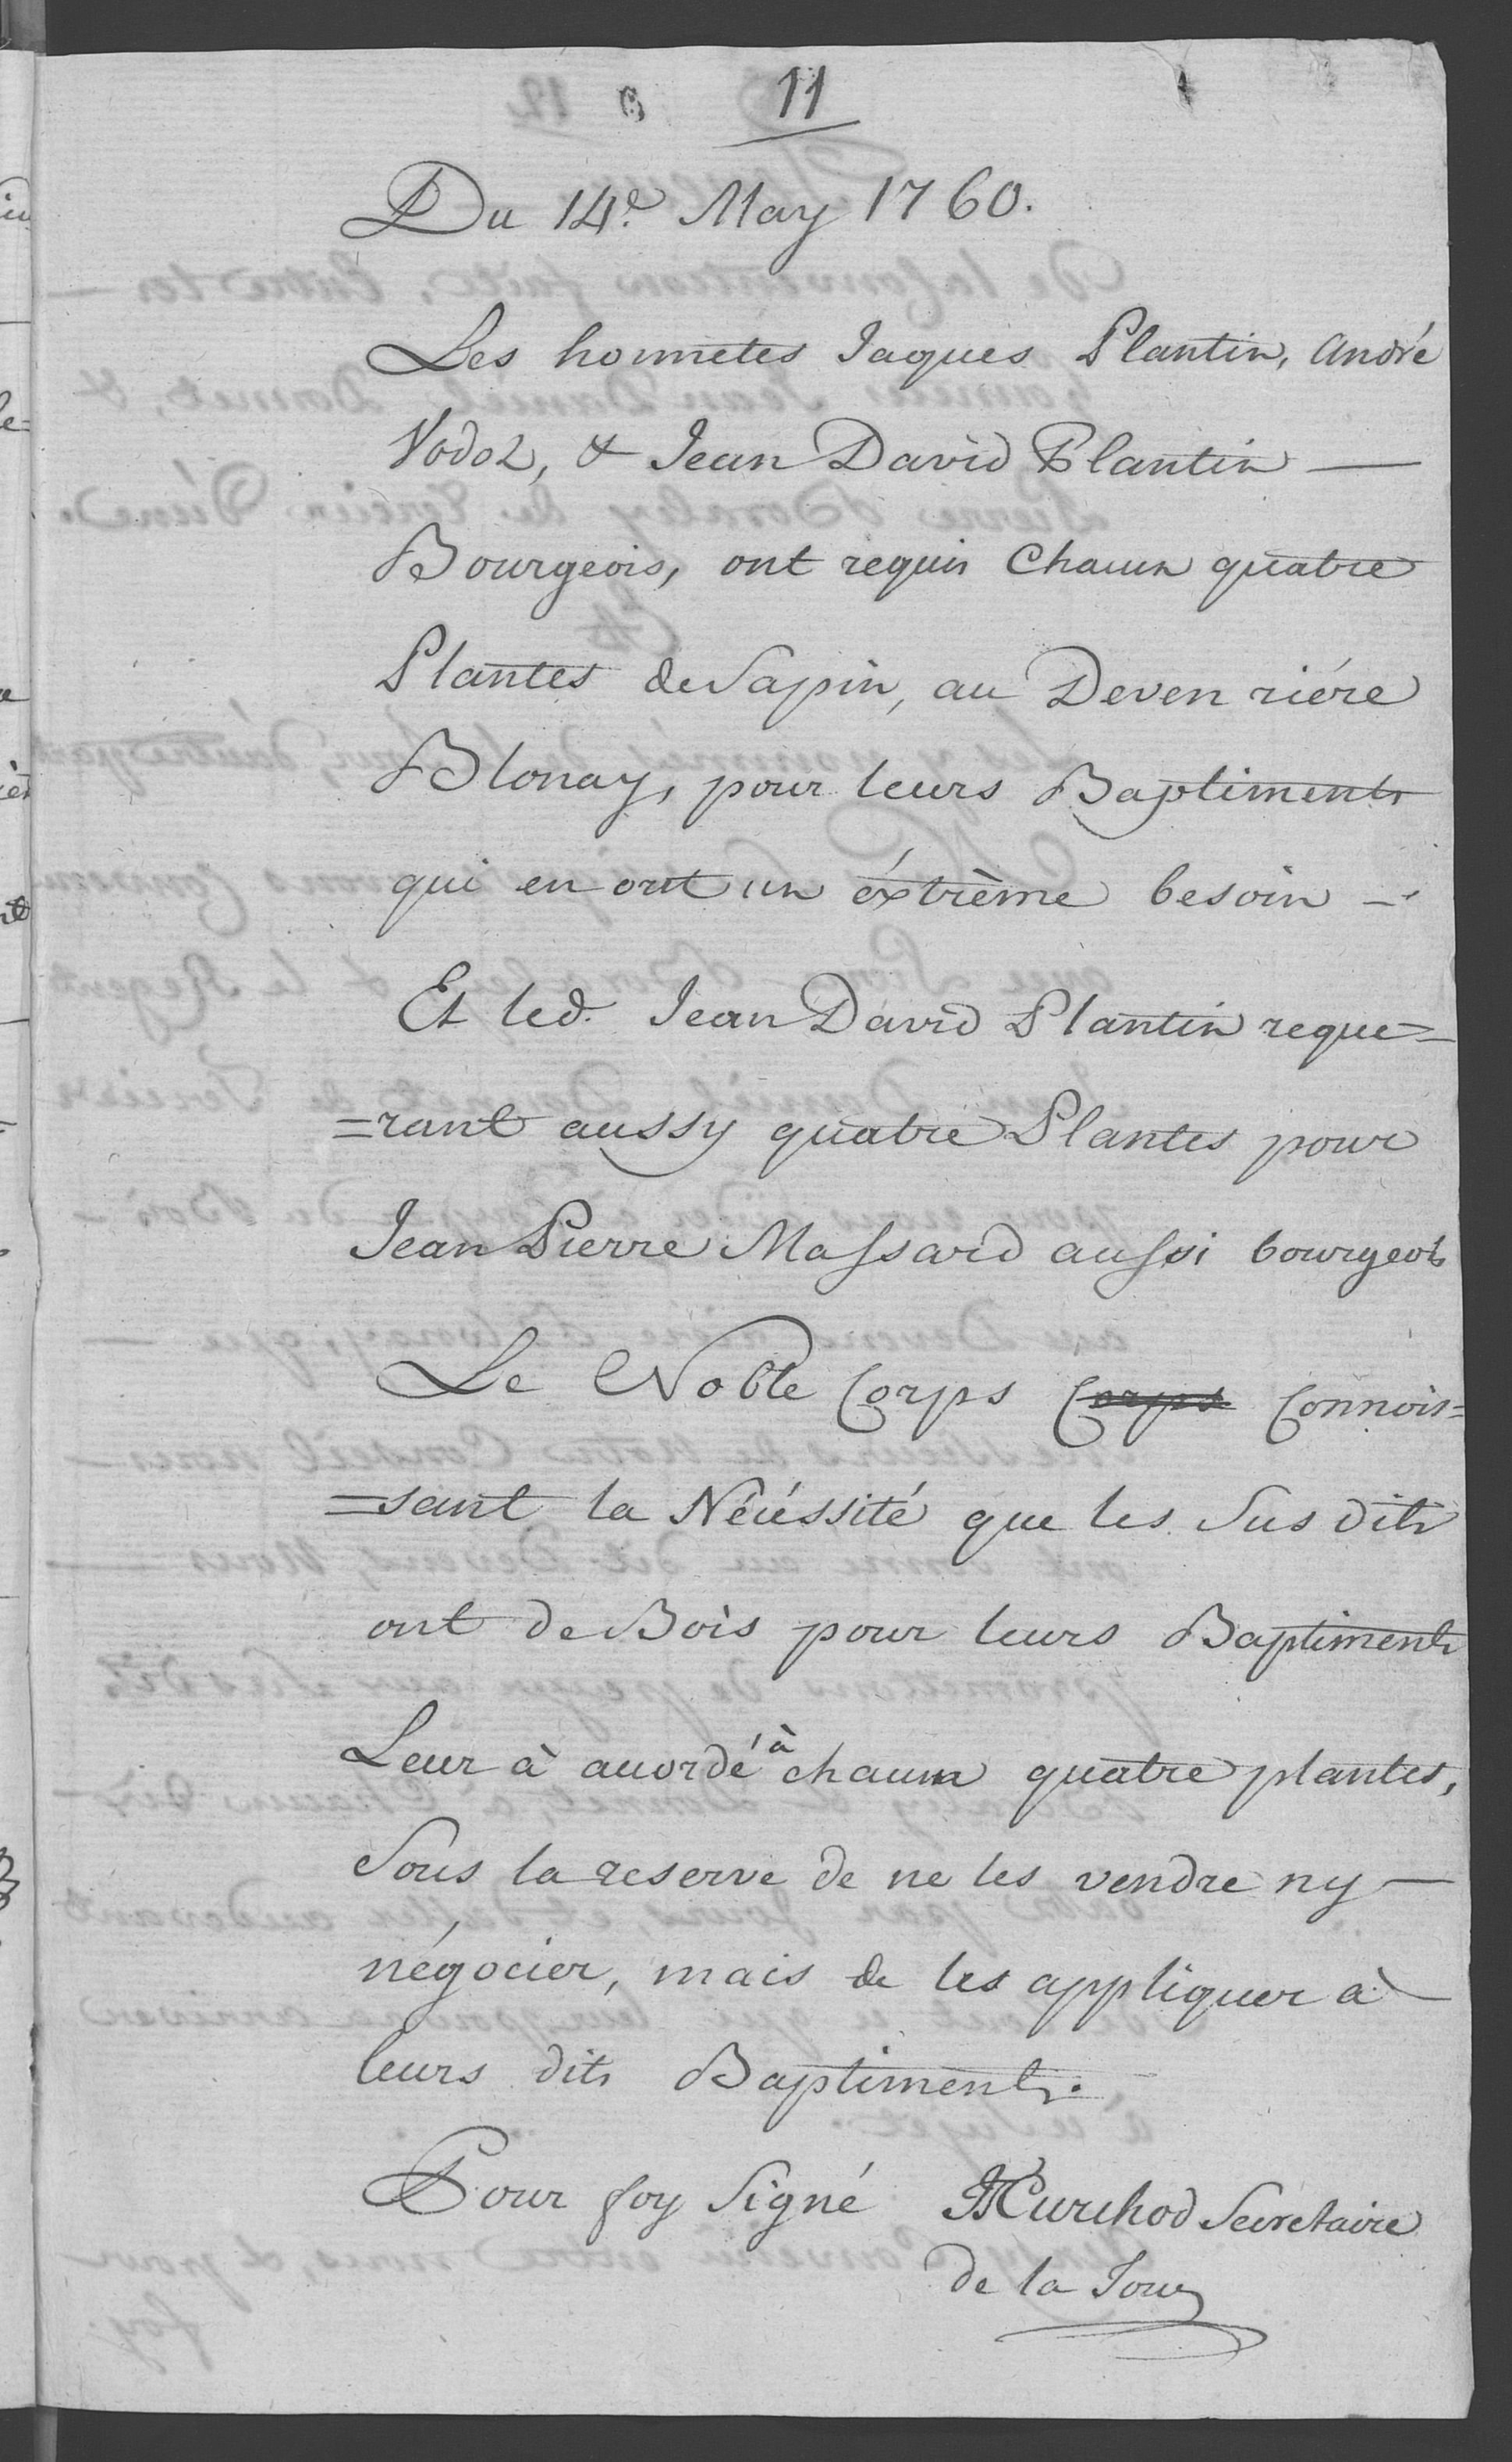 11
Du 14.e May 1760.
Les honnetes Jaques Plantin, André
Vodoz, & Jean David Plantin —
Bourgeois, ont requis Chacun quatre
Plantes de Sapin, au Deven riére
Blonay, pour leurs Baptiments
qui en ont un éxtrème besoin —
Et led. Jean David Plantin reque=
=rant aussy quatre Plantes pour
Jean Pierre Massard aussi bourgeois
Le Noble Corps Corps Connois=
=sant la Nécéssité que les Sus dits
ont de Bois pour leurs Baptiments
Leur à accordé à chacun quatre plantes,
Sous la reserve de ne les vendre ny —
négocier, mais de les appliquer à
leurs dits Baptiments.
Pour foy Signé Curchod Secretaire
de la Tour